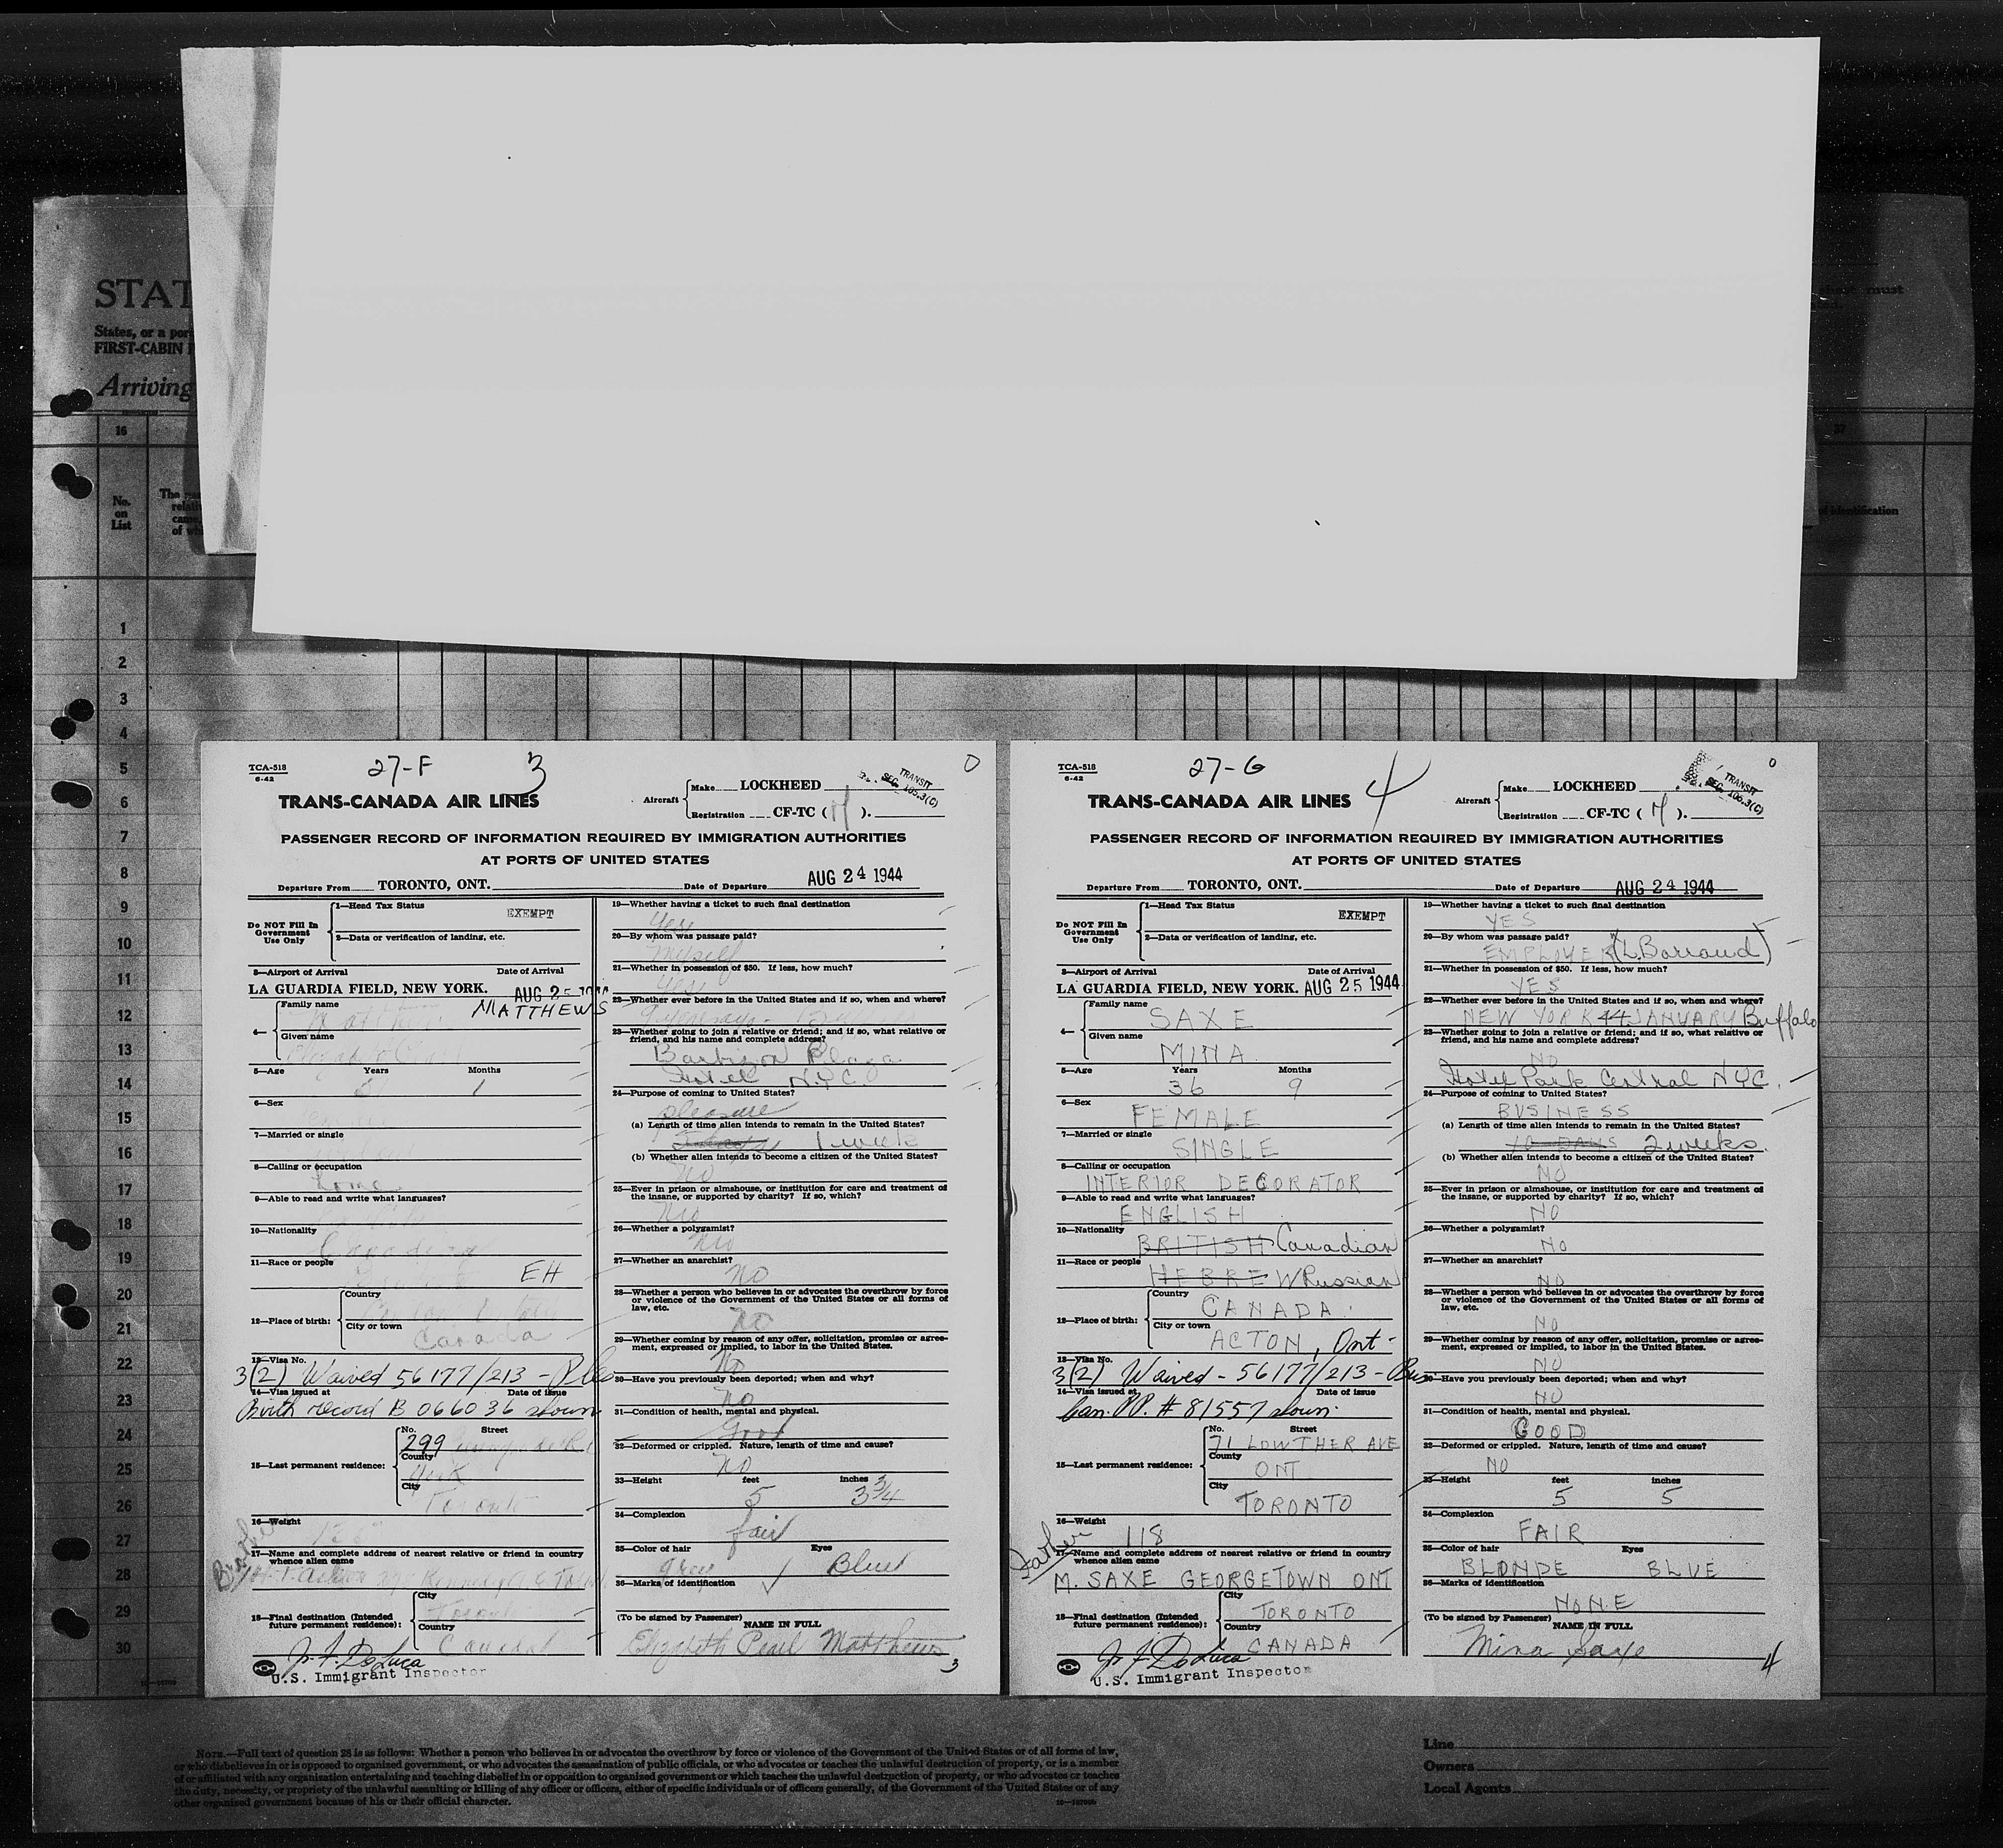 STAT
States, or a por
FIRST-CABIN
Arriving
must
16
37
No.
on
List
The
relati
came
of wh
of identification
1
2
3
4
5
6
7
8
9
10
11
12
13
14
15
16
17
18
19
20
21
22
23
24
25
26
27
28
29
30
TCA-518
6-42
27-F 3 0
TRANS-CANADA AIR LINES
Aircraft
Make LOCKHEED
Registration CF-TC ( ).
TRANSIT
SEC. 105.3(C)
PASSENGER RECORD OF INFORMATION REQUIRED BY IMMIGRATION AUTHORITIES
AT PORTS OF UNITED STATES
Departure From TORONTO, ONT. Date of Departure AUG 24 1944
Do NOT Fill In
Government
Use Only
1—Head Tax Status
EXEMPT
2—Data or verification of landing, etc.
3—Airport of Arrival Date of Arrival
LA GUARDIA FIELD, NEW YORK. AUG 25 1944
4— Family name
MATTHEWS
Given name
5—Age Years Months
1
6—Sex
7—Married or single
8—Calling or occupation
home
9—Able to read and write what languages?
10—Nationality
Canadian
11—Race or people
EH
12—Place of birth: Country
City or town
Canada
13—Visa No.
3(2) Waived 56177/213 - Ples
14—Visa issued at Date of issue
Birth record B 066036 shown
15—Last permanent residence:
No. Street
299
County
York
City
Toronto
16—Weight
Brother
17—Name and complete address of nearest relative or friend in country
whence alien came
18—Final destination (Intended
future permanent residence):
City
Toronto
Country
Canada
J. F. DeLuca
U.S. Immigrant Inspector
19—Whether having a ticket to such final destination
Yes
20—By whom was passage paid?
Myself
21—Whether in possession of $50. If less, how much?
Yes
22—Whether ever before in the United States and if so, when and where?
23—Whether going to join a relative or friend; and if so, what relative or
friend, and his name and complete address?
Barbizon Plaza
Hotel N.Y.C.
24—Purpose of coming to United States?
pleasure
(a) Length of time alien intends to remain in the United States?
1 week
(b) Whether alien intends to become a citizen of the United States?
No
25—Ever in prison or almshouse, or institution for care and treatment of
the insane, or supported by charity? If so, which?
No
26—Whether a polygamist?
No
27—Whether an anarchist?
No
28—Whether a person who believes in or advocates the overthrow by force
or violence of the Government of the United States or all forms of
law, etc.
No
29—Whether coming by reason of any offer, solicitation, promise or agree-
ment, expressed or implied, to labor in the United States.
No
30—Have you previously been deported; when and why?
No
31—Condition of health, mental and physical.
Good
32—Deformed or crippled. Nature, length of time and cause?
No
33—Height feet inches
5 3¾
34—Complexion
fair
35—Color of hair Eyes
grey Blue
36—Marks of identification
(To be signed by Passenger) NAME IN FULL
Elizabeth Pearl Matthews
3
TCA-518
6-42
27-G 4 0
TRANS-CANADA AIR LINES
Aircraft
Make LOCKHEED
Registration CF-TC ( ).
TRANSIT
SEC. 105.3(C)
PASSENGER RECORD OF INFORMATION REQUIRED BY IMMIGRATION AUTHORITIES
AT PORTS OF UNITED STATES
Departure From TORONTO, ONT. Date of Departure AUG 24 1944
Do NOT Fill In
Government
Use Only
1—Head Tax Status
EXEMPT
2—Data or verification of landing, etc.
3—Airport of Arrival Date of Arrival
LA GUARDIA FIELD, NEW YORK. AUG 25 1944
4— Family name
SAXE
Given name
MINA
5—Age Years Months
36 9
6—Sex
FEMALE
7—Married or single
SINGLE
8—Calling or occupation
INTERIOR DECORATOR
9—Able to read and write what languages?
ENGLISH
10—Nationality
BRITISH Canadian
11—Race or people
HEBREW Russian
12—Place of birth: Country
CANADA
City or town
ACTON, Ont-
13—Visa No.
3(2) Waived - 56177/213 - Bus
14—Visa issued at Date of issue
Can. PP. # 81557 shown.
15—Last permanent residence:
No. Street
71 LOWTHER AVE
County
ONT
City
TORONTO
16—Weight
118
Father
17—Name and complete address of nearest relative or friend in country
whence alien came
M. SAXE GEORGETOWN ONT
18—Final destination (Intended
future permanent residence):
City
TORONTO
Country
CANADA
J. F. DeLuca
U.S. Immigrant Inspector
19—Whether having a ticket to such final destination
YES
20—By whom was passage paid?
EMPLOYER (L. Barraud)
21—Whether in possession of $50. If less, how much?
YES
22—Whether ever before in the United States and if so, when and where?
NEW YORK 44 JANUARY Buffalo
23—Whether going to join a relative or friend; and if so, what relative or
friend, and his name and complete address?
NO
Hotel Park Central NYC.
24—Purpose of coming to United States?
BUSINESS
(a) Length of time alien intends to remain in the United States?
10 DAYS 2 weeks.
(b) Whether alien intends to become a citizen of the United States?
NO
25—Ever in prison or almshouse, or institution for care and treatment of
the insane, or supported by charity? If so, which?
NO
26—Whether a polygamist?
NO
27—Whether an anarchist?
NO
28—Whether a person who believes in or advocates the overthrow by force
or violence of the Government of the United States or all forms of
law, etc.
NO
29—Whether coming by reason of any offer, solicitation, promise or agree-
ment, expressed or implied, to labor in the United States.
NO
30—Have you previously been deported; when and why?
NO
31—Condition of health, mental and physical.
GOOD
32—Deformed or crippled. Nature, length of time and cause?
NO
33—Height feet inches
5 5
34—Complexion
FAIR
35—Color of hair Eyes
BLONDE BLUE
36—Marks of identification
NONE
(To be signed by Passenger) NAME IN FULL
Mina Saxe
4
NOTE.—Full text of question 28 is as follows: Whether a person who believes in or advocates the overthrow by force or violence of the Government of the United States or of all forms of law,
or who disbelieves in or is opposed to organized government, or who advocates the assassination of public officials, or who advocates or teaches the unlawful destruction of property, or is a member
of or affiliated with any organization entertaining and teaching disbelief in or opposition to organized government or which teaches the unlawful destruction of property, or who advocates or teaches
the duty, necessity, or propriety of the unlawful assaulting or killing of any officer or officers, either of specific individuals or of officers generally, of the Government of the United States or of any
other organized government because of his or their official character.
Line
Owners
Local Agents